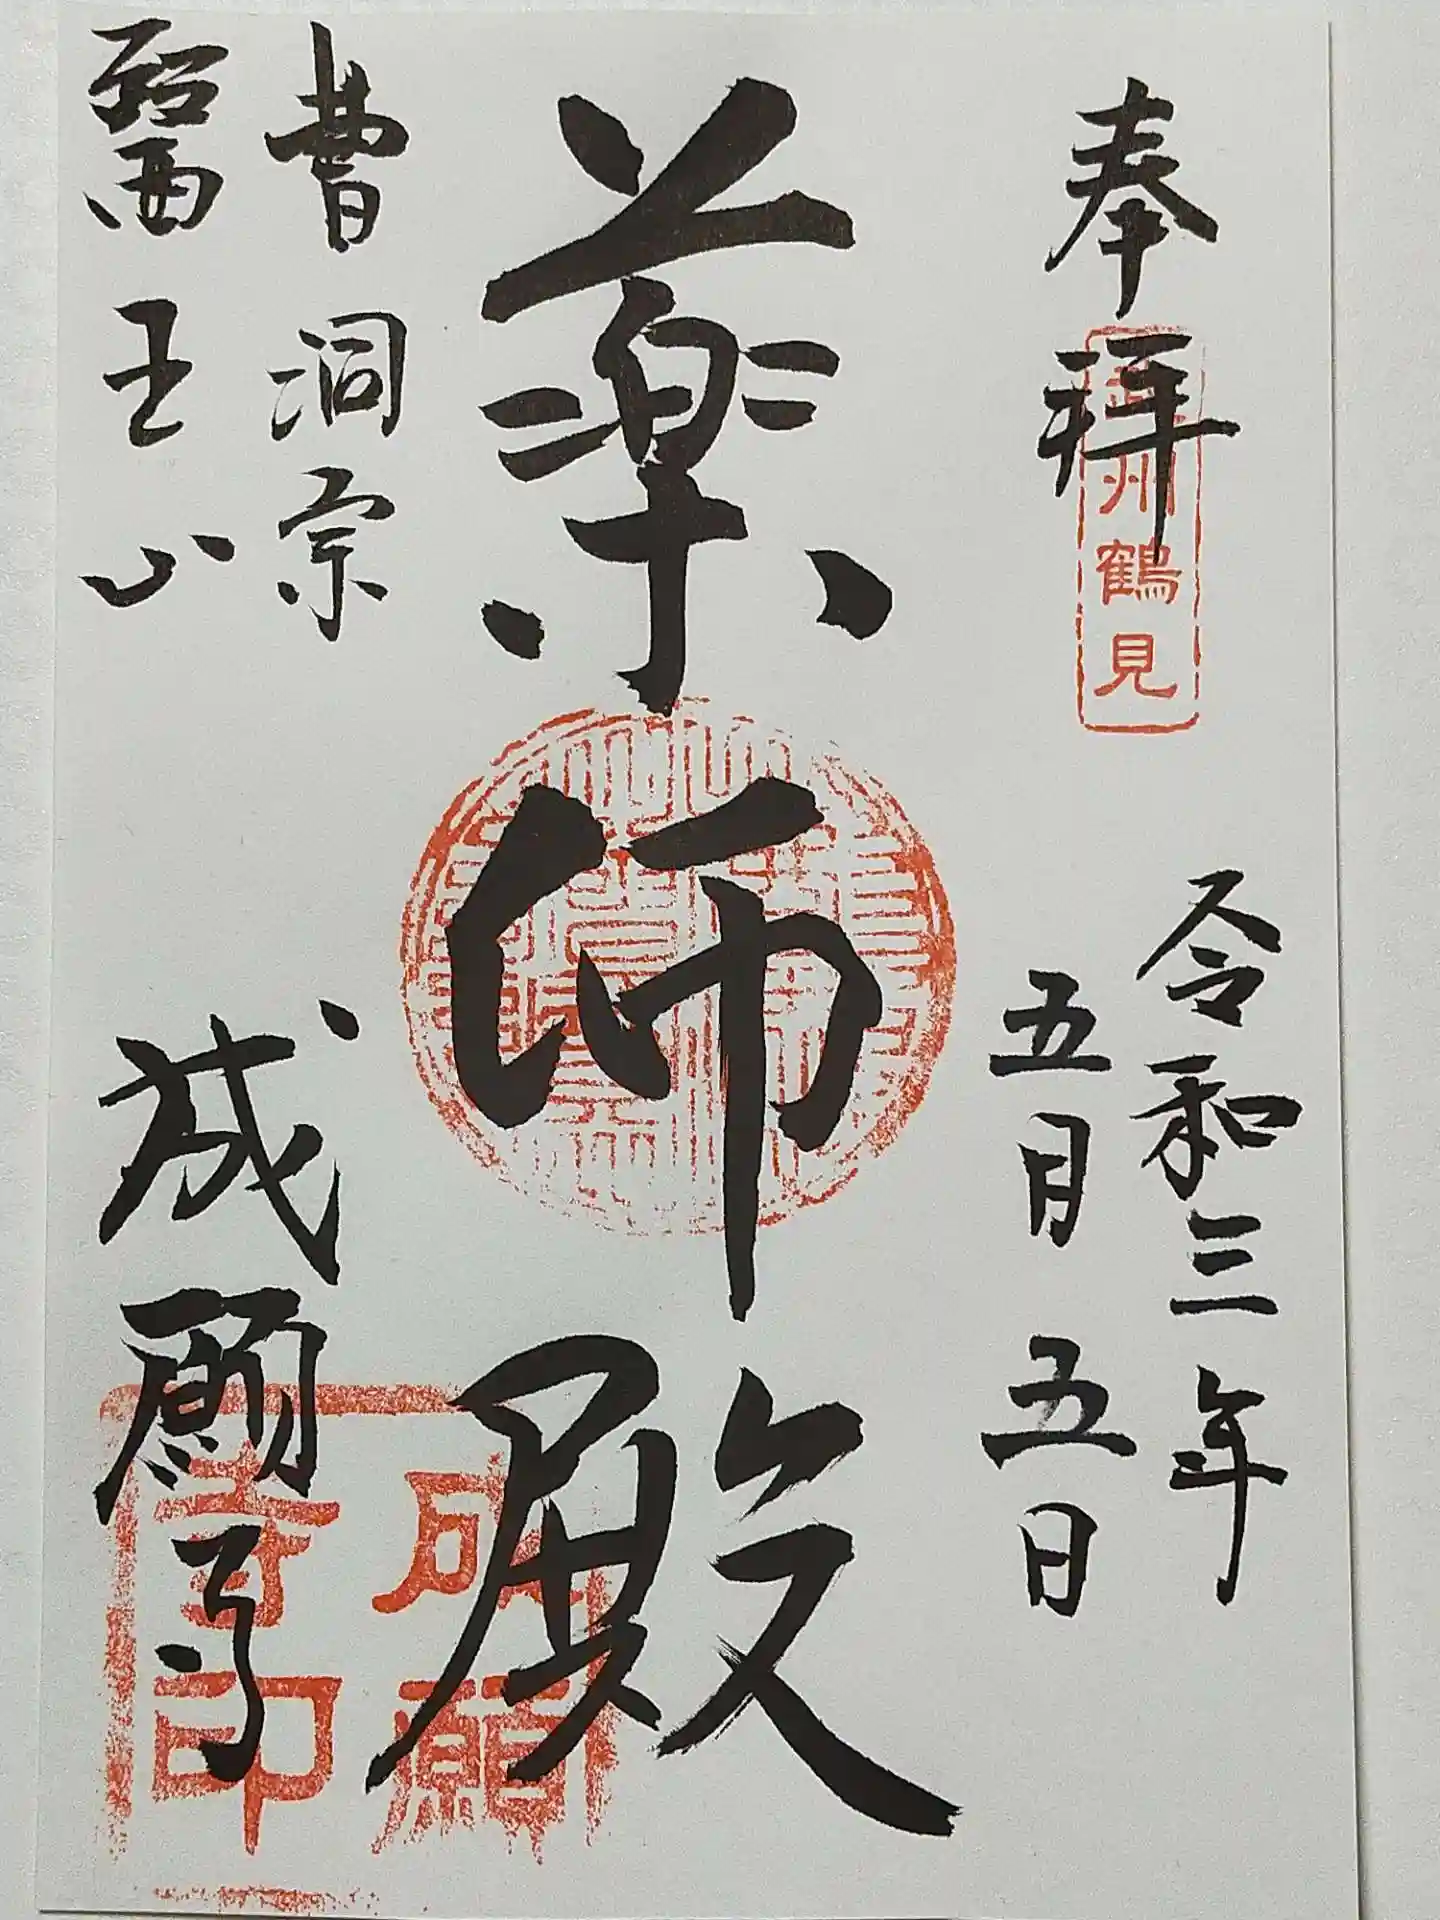 奉拝
武州鶴見
令和三年
五月五日
薬師殿
曹洞宗
醫王山
成願寺
成願
寺印